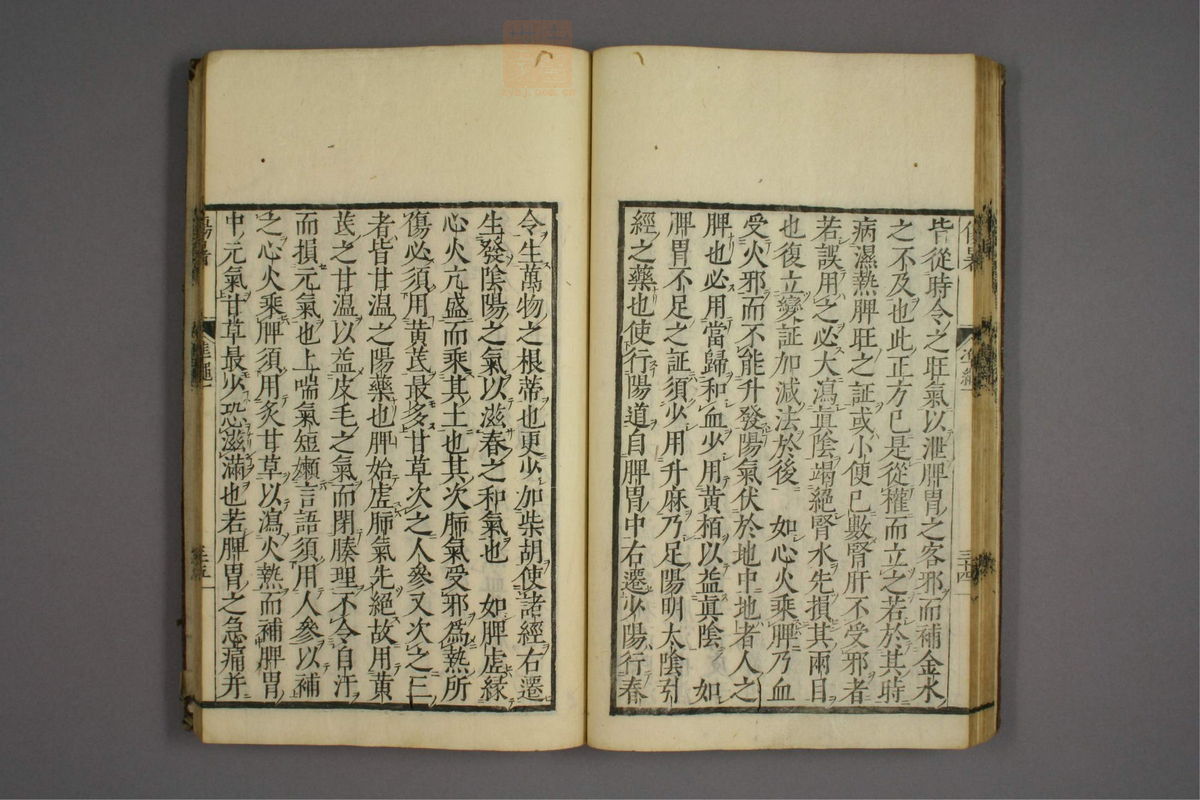 皆從時令之旺氣以泄脾胃之客邪而補金水
之不及也此正方已是從權而立之若於其時
病濕熱脾旺之証或小便已數腎肝不受邪者
若誤用之必大瀉眞陰竭絕腎水先損其兩目
也復立變証加減法於後 如心火乘脾乃血
受火邪而不能升發陽氣伏於地中地者人之
脾也必用當歸和血少用黄栢以益眞陰 如
脾胃不足之証須少用升麻乃足陽明太陰引
經之藥也使行陽道自脾胃中右遷少陽行春
三十四
令生萬物之根蒂也更少加柴胡使諸經右遷
生發陰陽之氣以滋春之和氣也 如脾虚緣
心火亢盛而乘其土也其次肺氣受邪爲熱所
傷必須用黄芪最多甘草次之人參又次之三
者皆甘温之陽藥也脾始虚肺氣先絕故用黄
芪之甘温以益皮毛之氣而閉腠理不令自汗
而損元氣也上喘氣短嬾言語須用人參以補
之心火乘脾須用炙甘草以瀉火熱而補脾胃
中元氣甘草最少恐滋滿也若脾胃之急痛并
傷暑
準繩
三十五